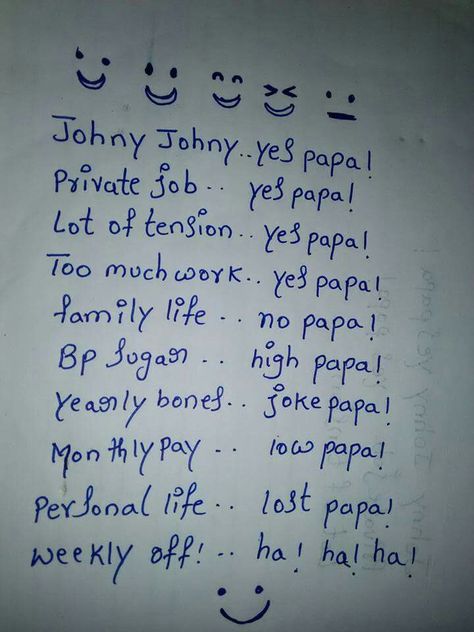 Johny Johny..yes papa!
Private job.. yes papa!
Lot of tension.. yes papa!
Too much work.. yes papa!
family life .. no papa!
Bp sugar .. high papa!
Yearly bones.. joke papa!
Monthly pay .. low papa!
Personal life.. lost papa!
weekly off!.. ha! ha! ha!